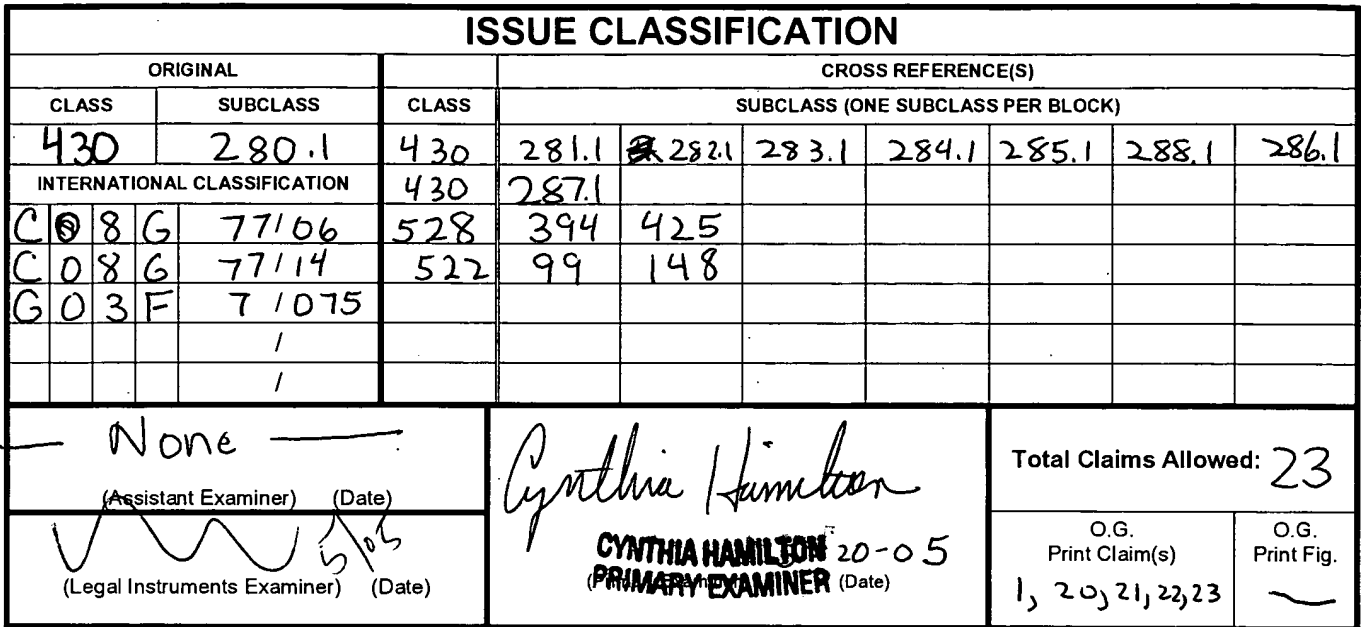 ISSUE CLASSIFICATION
ORIGINAL CROSS REFERENCE(S)
CLASS SUBCLASS CLASS SUBCLASS (ONE SUBCLASS PER BLOCK)
430 280.1 430 281.1 282.1 283.1 284.1 285.1 288.1 286.1
INTERNATIONAL CLASSIFICATION 430 287.1
C 0 8 G 77/06 528 394 425
C 0 8 G 77/14 522 99 148
G 0 3 F 7/075
/
/
— None —
(Assistant Examiner) (Date)
5/05
(Legal Instruments Examiner) (Date)
Cynthia Hamilton
CYNTHIA HAMILTON 20-05
PRIMARY EXAMINER (Date)
Total Claims Allowed: 23
O.G. Print Claim(s)
1, 20, 21, 22, 23
O.G. Print Fig.
—